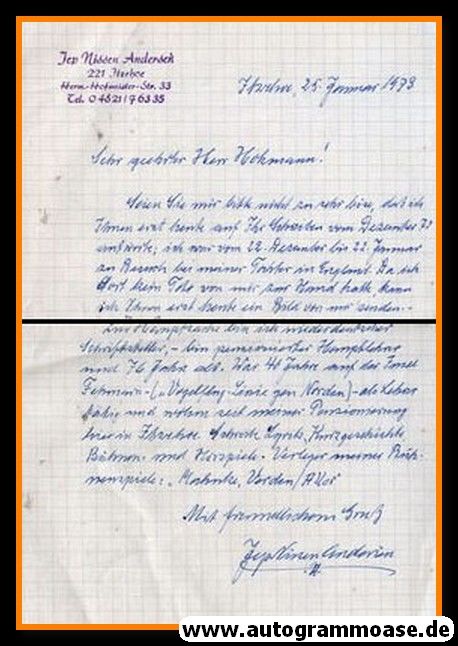 Jep Nissen Andersen
221 Itzehoe
Tel. 0 4821/76335
Itzehoe, 25. Januar 1973
Sehr geehrter Herr Hohmann!
Seien Sie mir bitte nicht zu sehr böse, daß ich
Ihnen erst heute auf Ihr Schreiben vom Dezember
antworte; ich war vom 22. Dezember bis 22. Januar
zu Besuch bei meiner Tochter in England. Da ich
dort kein Foto von mir zur Hand hatte, kann
ich Ihnen erst heute ein Bild von mir senden.-
bin ich niederdeutscher
Schriftsteller, - bin pensionierter Hauptlehrer
und 76 Jahre alt. War 40 Jahre auf der Insel
Fehmarn - ( Vogelflug-Linie gen Norden) - als Lehrer
tätig und wohne seit meiner Pensionierung
hier in Itzehoe. Schreibe Lyrik, Kurzgeschichte
Bühnen- und Hörspiele. Verleger meiner Büh-
nenspiele: Mahnke, Verden/Aller
Mit freundlichem Gruß
Jep Nissen Andersen
www.autogrammoase.de